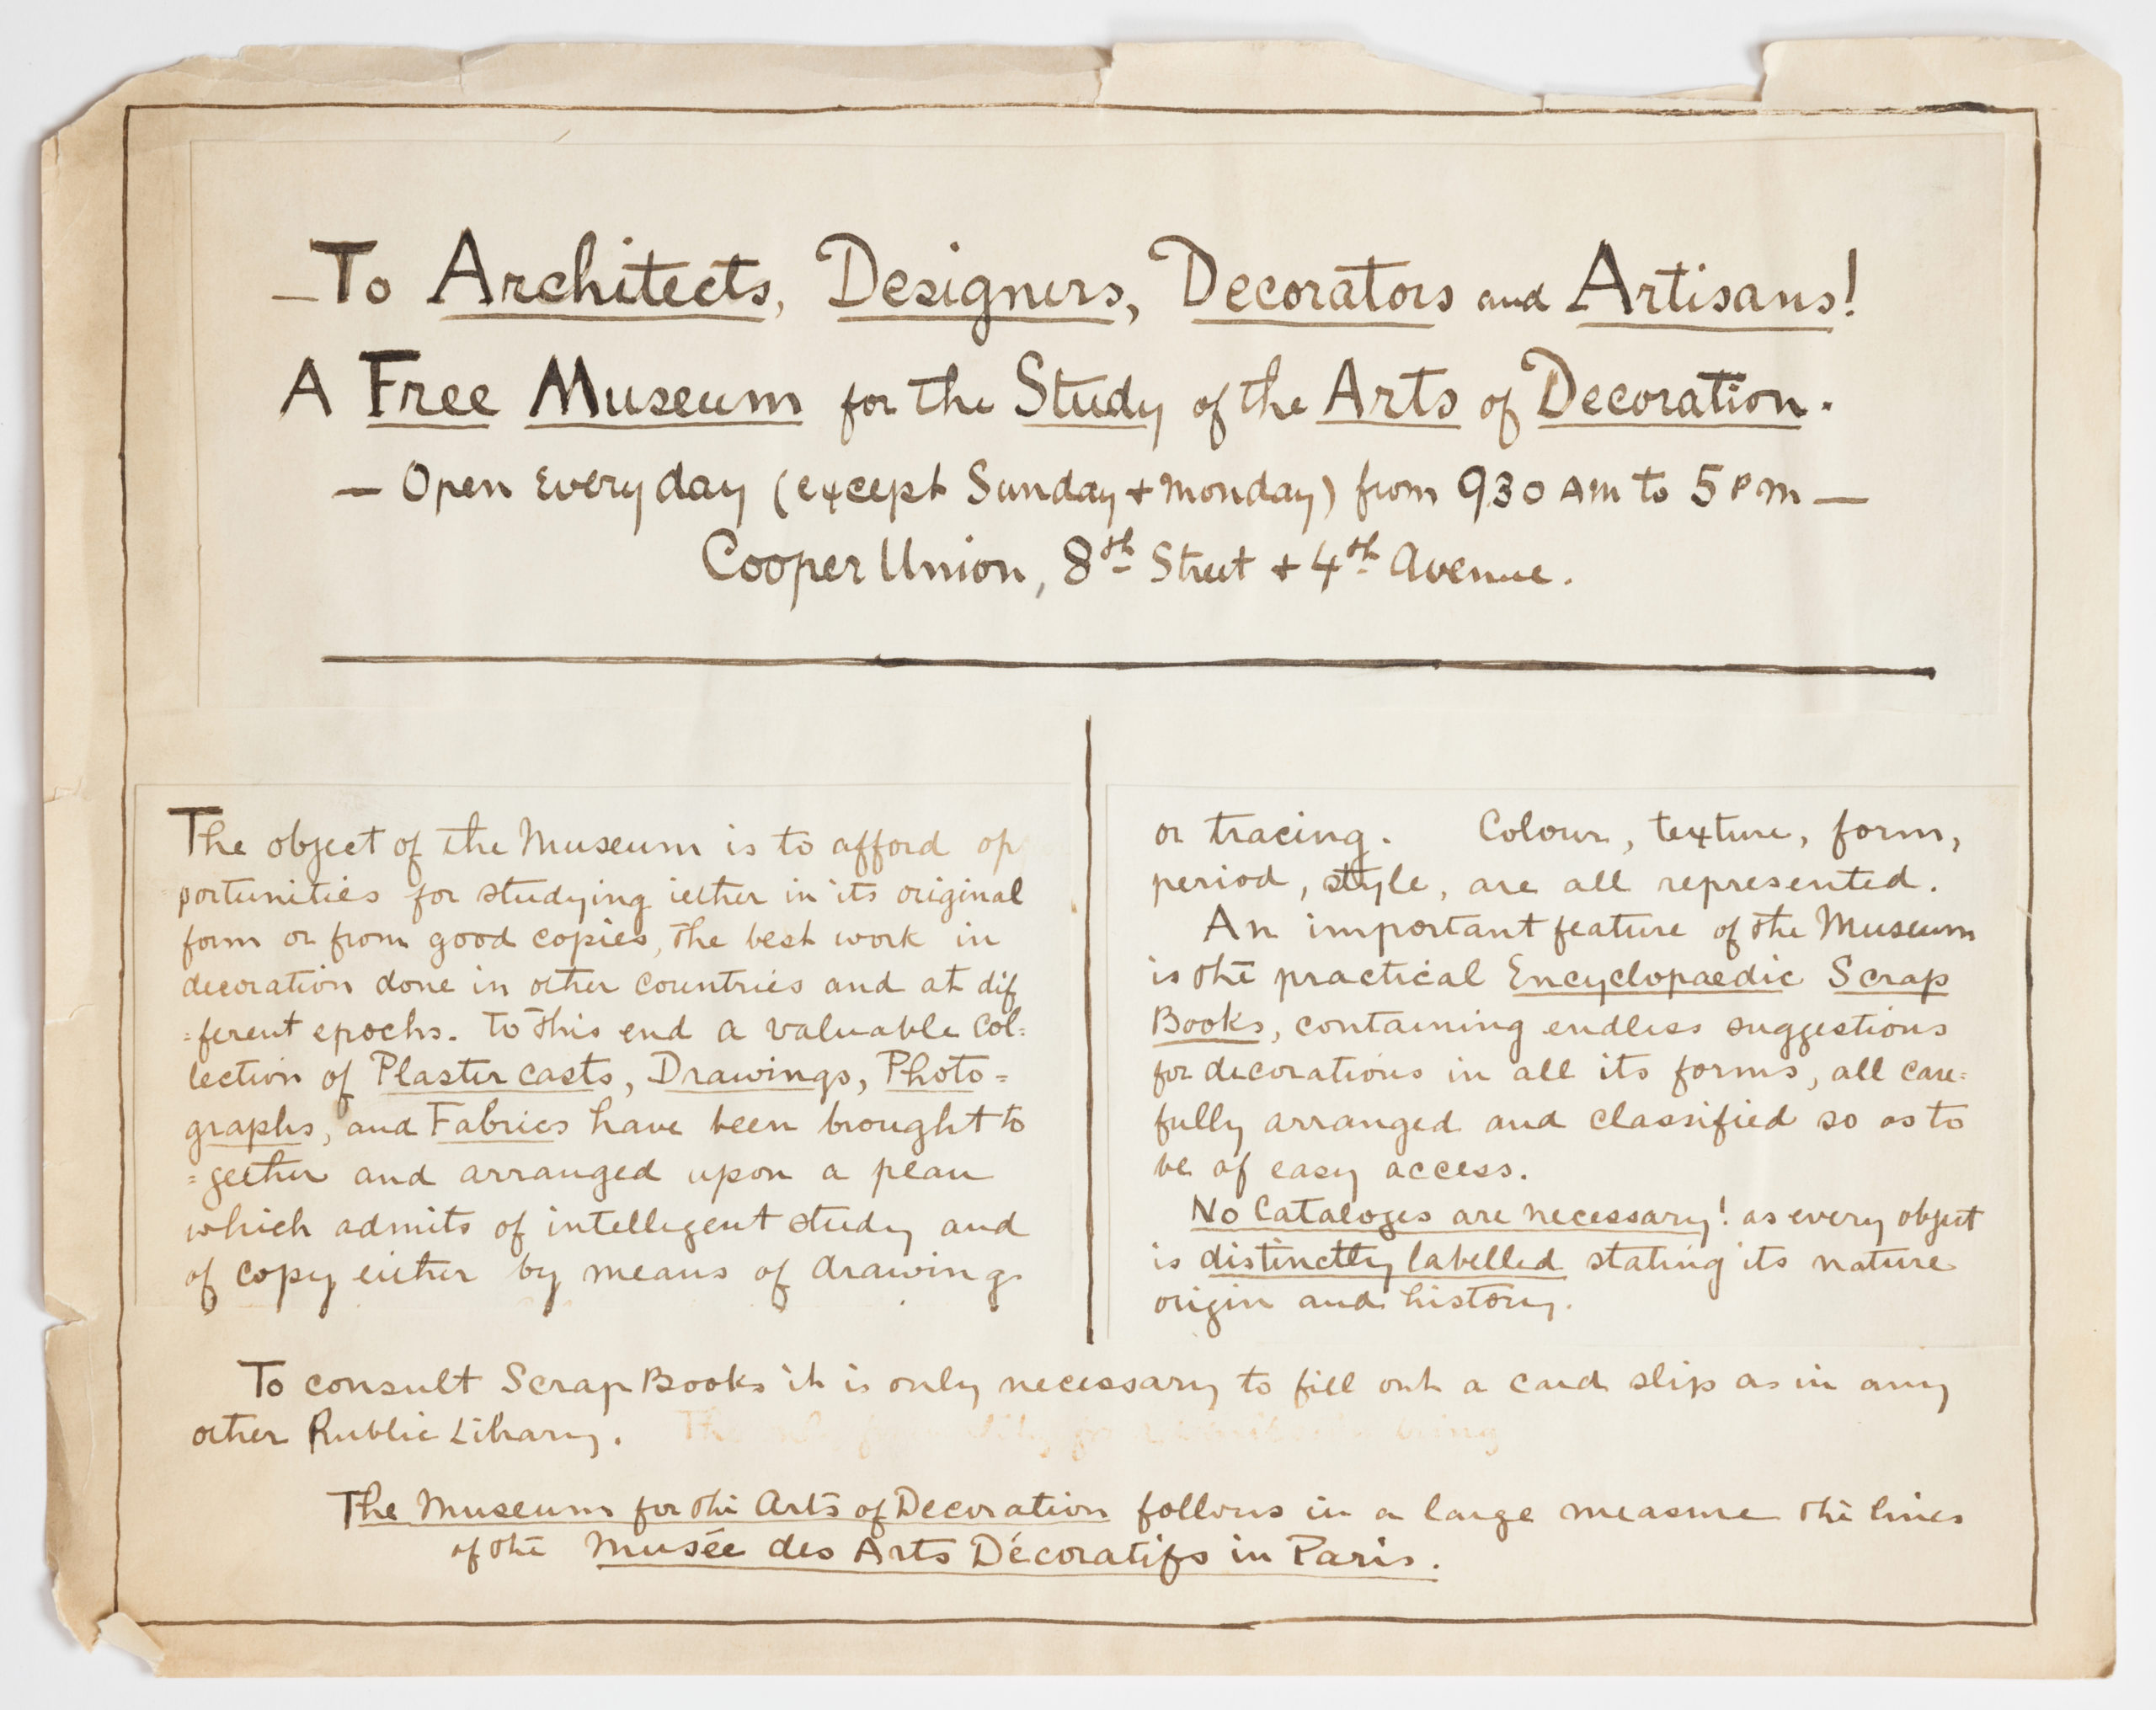 – To Architects, Designers, Decorators and Artisans!
A Free Museum for the Study of the Arts of Decoration.
– Open Every day (except Sunday + Monday) from 930 AM to 5 PM –
Cooper Union, 8th Street + 4th Avenue.
The object of the Museum is to afford op
portunities for studying iether in its original
form or from good copies, the best work in
decoration done in other countries and at dif
=ferent epochs. To this end a valuable Col=
lection of Plaster casts, Drawings, Photo=
graphs, and Fabrics have been brought to
=gether and arranged upon a plan
which admits of intelligent study and
of copy either by means of drawing
or tracing. Colour, texture, form,
period, style, are all represented.
An important feature of the Museum
is the practical Encyclopaedic Scrap
Books, containing endless suggestions
for decorations in all its forms, all care=
fully arranged and classified so as to
be of easy access.
No Cataloges are necessary! as every object
is distinctly labelled stating its nature
origin and history.
To consult Scrap Books it is only necessary to fill out a card slip as in any
other Public Library. The
The Museum for the Arts of Decoration follows in a large measure the lines
of the Musée des Arts Décoratifs in Paris.